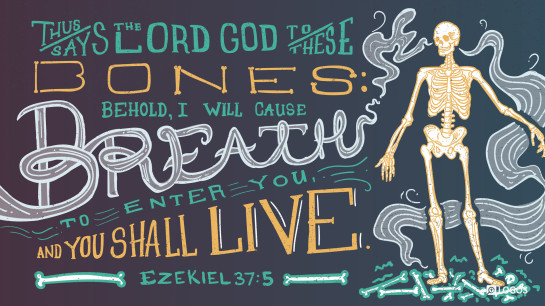 THUS SAYS THE LORD GOD TO THESE
BONES:
BEHOLD, I WILL CAUSE
BREATH
TO ENTER YOU,
AND YOU SHALL LIVE.
EZEKIEL 37:5
LOGOS